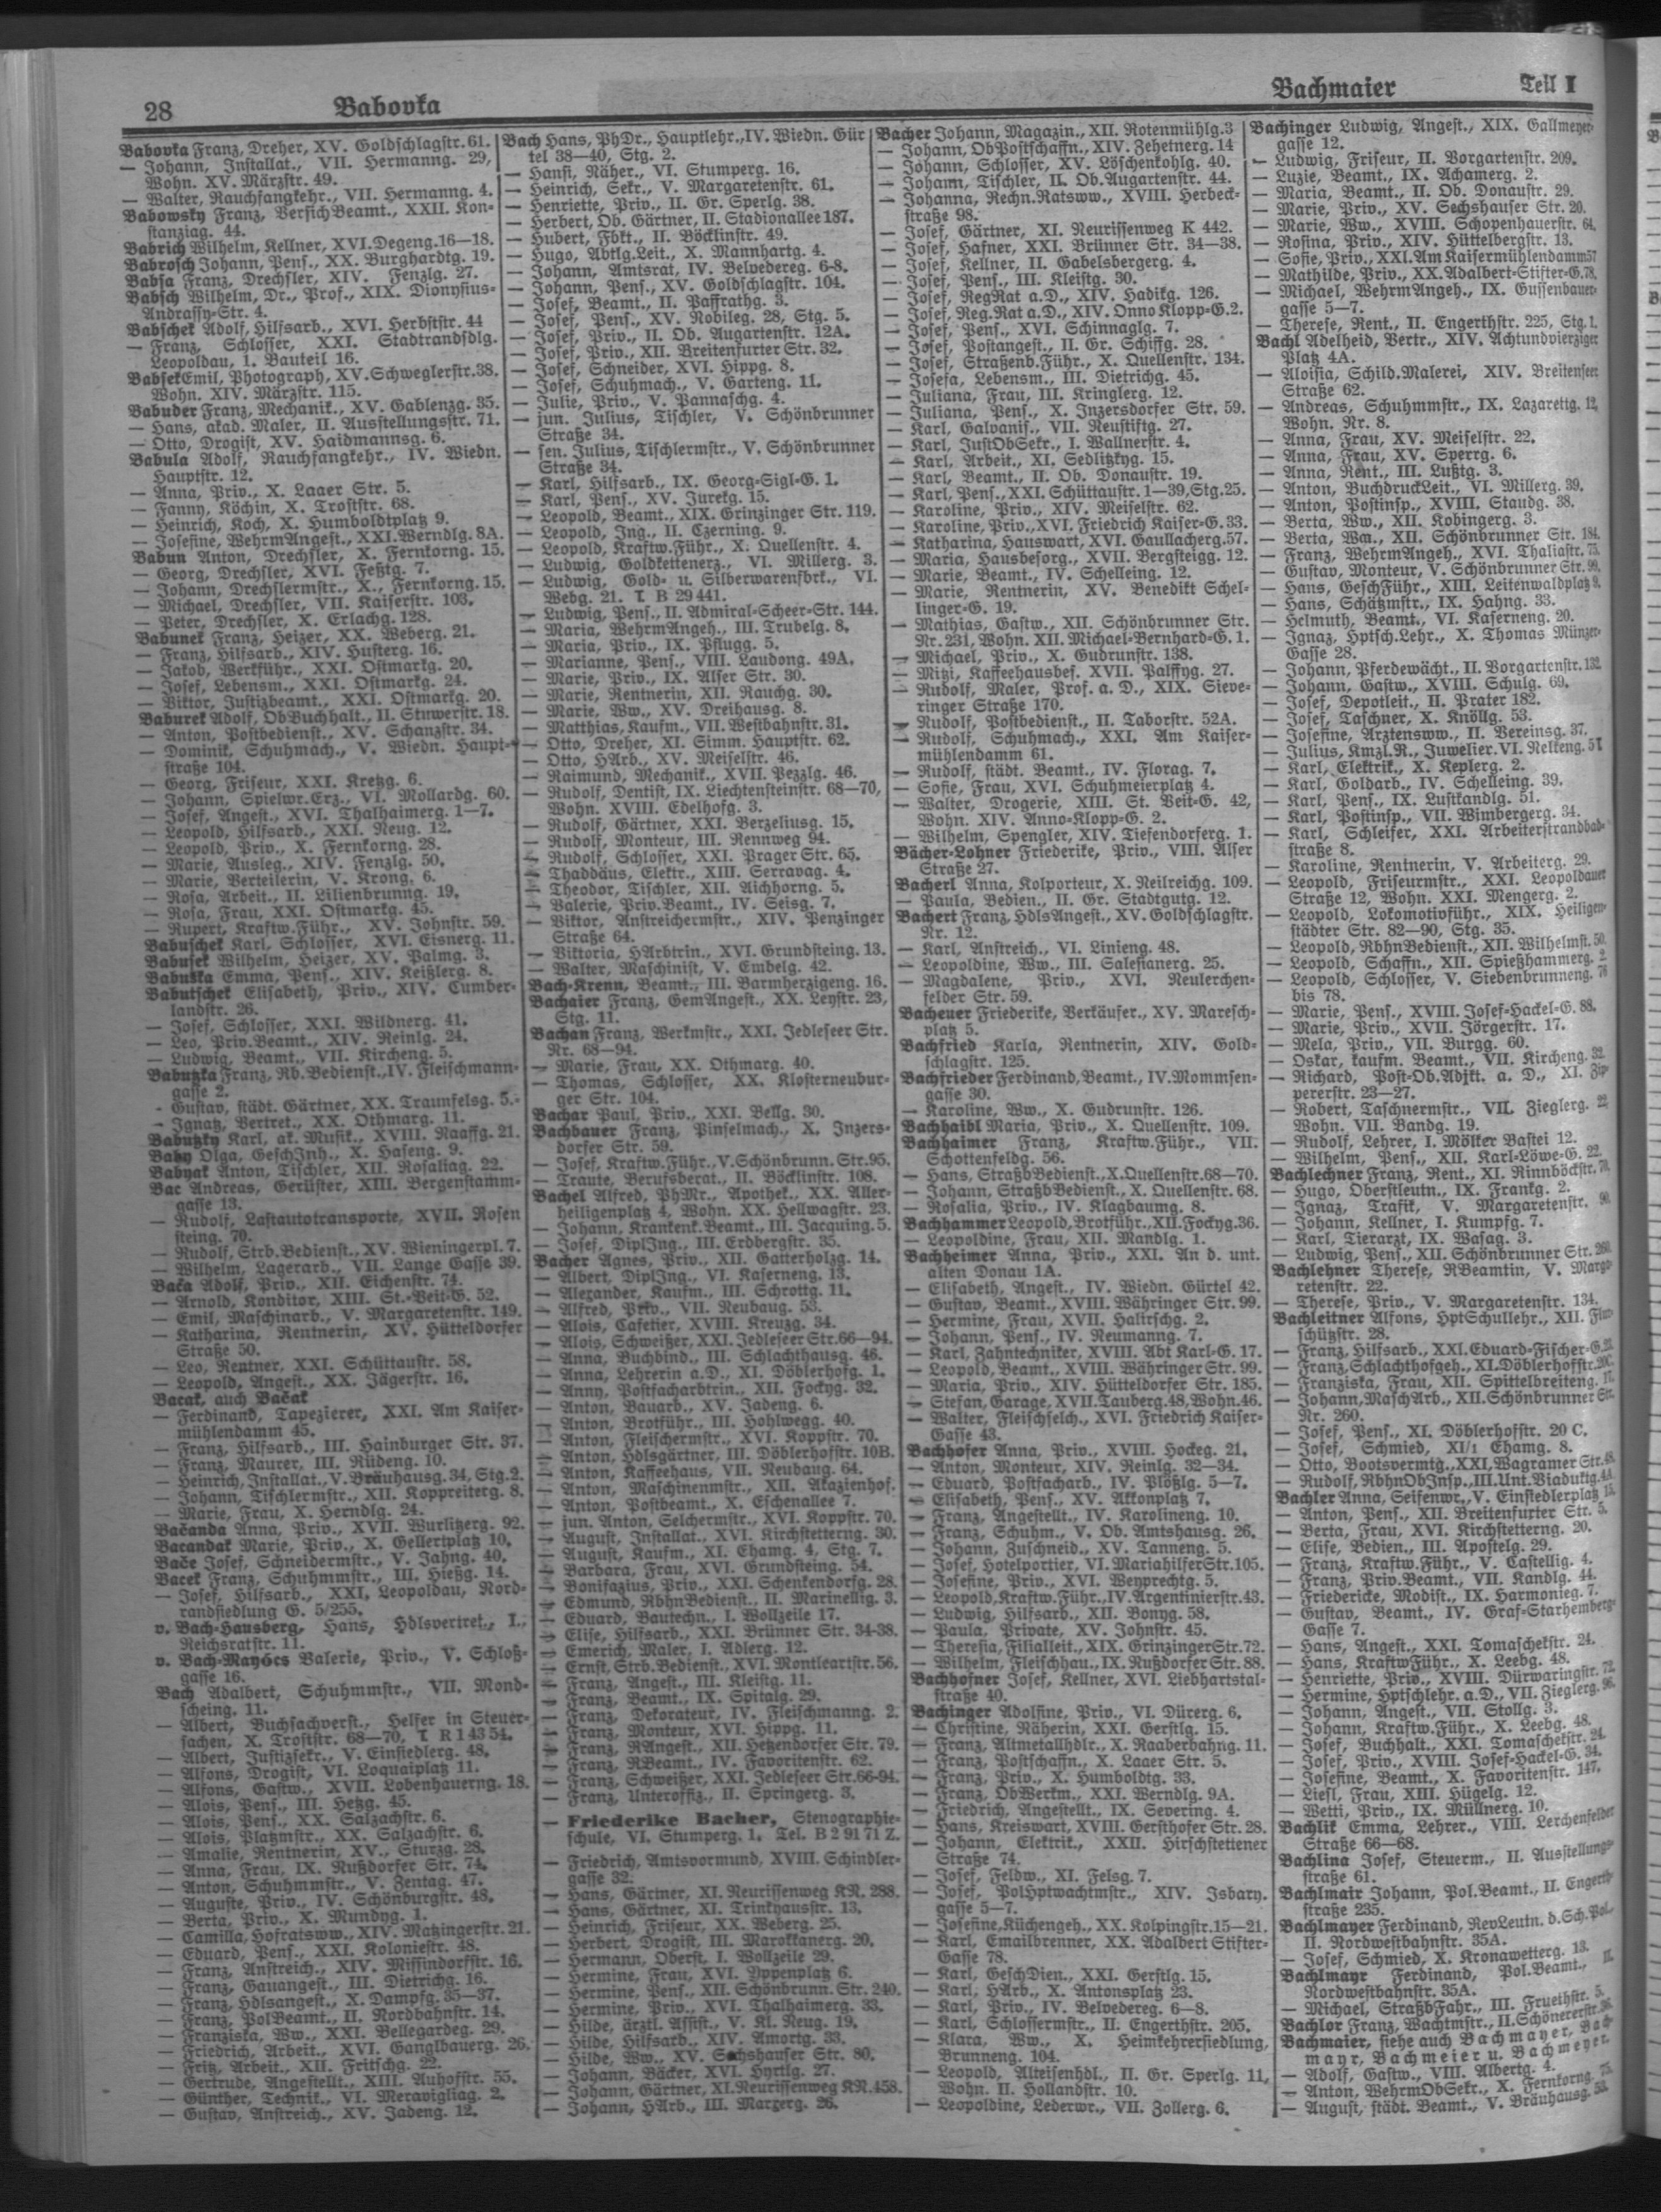 28
Babovka
Bachmaier
Teil I
Babovka Franz, Dreher, XV. Goldschlagstr. 61.
— Johann, Installat., VII. Hermanng. 29,
Wohn. XV. Märzstr. 49.
— Walter, Rauchfangkehr., VII. Hermanng. 4.
Babowsky Franz, VersichBeamt., XXII. Kon-
stanziag. 44.
Babrich Wilhelm, Kellner, XVI. Degeng. 16—18.
Babrosch Johann, Pens., XX. Burghardtg. 19.
Babsa Franz, Drechsler, XIV. Fenzlg. 27.
Babsch Wilhelm, Dr., Prof., XIX. Dionysius-
Andrassy-Str. 4.
Babschek Adolf, Hilfsarb., XVI. Herbststr. 44
— Franz, Schlosser, XXI. Stadtrandsdlg.
Leopoldau, 1. Bauteil 16.
Babsek Emil, Photograph, XV. Schweglerstr. 38.
Wohn. XIV. Märzstr. 115.
Babuder Franz, Mechanik., XV. Gablenzg. 35.
— Hans, akad. Maler, II. Ausstellungsstr. 71.
— Otto, Drogist, XV. Haidmannsg. 6.
Babula Adolf, Rauchfangkehr., IV. Wiedn.
Hauptstr. 12.
— Anna, Priv., X. Laaer Str. 5.
— Fanny, Köchin, X. Troststr. 68.
— Heinrich, Koch, X. Humboldtplatz 9.
— Josefine, WehrmAngest., XXI. Werndlg. 8A.
Babun Anton, Drechsler, X. Fernkorng. 15.
— Georg, Drechsler, XVI. Feßtg. 7.
— Johann, Drechslermstr., X., Fernkorng. 15.
— Michael, Drechsler, VII. Kaiserstr. 103.
— Peter, Drechsler, X. Erlachg. 128.
Babunek Franz, Heizer, XX. Weberg. 21.
— Franz, Hilfsarb., XIV. Husterg. 16.
— Jakob, Werkführ., XXI. Ostmarkg. 20.
— Josef, Lebensm., XXI. Ostmarkg. 24.
— Viktor, Justizbeamt., XXI. Ostmarkg. 20.
Baburek Adolf, ObBuchhalt., II. Stuwerstr. 18.
— Anton, Postbedienst., XV. Schanzstr. 34.
— Dominik, Schuhmach., V. Wiedn. Haupt-
straße 104.
— Georg, Friseur, XXI. Kretzg. 6.
— Johann, Spielwr.Erz., VI. Mollardg. 60.
— Josef, Angest., XVI. Thalhaimerg. 1—7.
— Leopold, Hilfsarb., XXI. Neug. 12.
— Leopold, Priv., X. Fernkorng. 28.
— Marie, Ausleg., XIV. Fenzlg. 50.
— Marie, Verteilerin, V. Krong. 6.
— Rosa, Arbeit., II. Lilienbrunng. 19.
— Rosa, Frau, XXI. Ostmarkg. 45.
— Rupert, Kraftw.Führ., XV. Johnstr. 59.
Babuschek Karl, Schlosser, XVI. Eisnerg. 11.
Babusek Wilhelm, Heizer, XV. Palmg. 3.
Babuška Emma, Pens., XIV. Keißlerg. 8.
Babutschek Elisabeth, Priv., XIV. Cumber-
landstr. 26.
— Josef, Schlosser, XXI. Wildnerg. 41.
— Leo, Priv.Beamt., XIV. Reinlg. 24.
— Ludwig, Beamt., VII. Kircheng. 5.
Babutzka Franz, Rb.Bedienst., IV. Fleischmann-
gasse 2.
- Gustav, städt. Gärtner, XX. Traunfelsg. 5.
- Ignatz, Vertret., XX. Othmarg. 11.
Babutzky Karl, ak. Musik., XVIII. Raaffg. 21.
Baby Olga, GeschInh., X. Haseng. 9.
Babyak Anton, Tischler, XII. Rosaliag. 22.
Bac Andreas, Gerüster, XIII. Bergenstamm-
gasse 13.
— Rudolf, Lastautotransporte, XVII. Rosen
steing. 70.
— Rudolf, Strb.Bedienst., XV. Wieningerpl. 7.
— Wilhelm, Lagerarb., VII. Lange Gasse 39.
Bača Adolf, Priv., XII. Eichenstr. 74.
— Arnold, Konditor, XIII. St.-Veit-G. 52.
— Emil, Maschinarb., V. Margaretenstr. 149.
— Katharina, Rentnerin, XV. Hütteldorfer
Straße 50.
— Leo, Rentner, XXI. Schüttaustr. 58.
— Leopold, Angest., XX. Jägerstr. 16.
Bacak, auch Bačak
— Ferdinand, Tapezierer, XXI. Am Kaiser-
mühlendamm 45.
— Franz, Hilfsarb., III. Hainburger Str. 37.
— Franz, Maurer, III. Rüdeng. 10.
— Heinrich, Installat., V. Bräuhausg. 34, Stg. 2.
— Johann, Tischlermstr., XII. Koppreiterg. 8.
— Marie, Frau, X. Herndlg. 24.
Bačanda Anna, Priv., XVII. Wurlitzerg. 92.
Bacandak Marie, Priv., X. Gellertplatz 10.
Bače Josef, Schneidermstr., V. Jahng. 40.
Bacek Franz, Schuhmmstr., III. Hießg. 14.
— Josef, Hilfsarb., XXI. Leopoldau, Nord-
randsiedlung G. 5/255.
v. Bach-Hausberg, Hans, Hdlsvertret., I.,
Reichsratstr. 11.
v. Bach-Mayócs Valerie, Priv., V. Schloß-
gasse 16.
Bach Adalbert, Schuhmmstr., VII. Mond-
scheing. 11.
— Albert, Buchsachverst., Helfer in Steuer-
sachen, X. Troststr. 68—70, T R 1 43 54.
— Albert, Justizsekr., V. Einsiedlerg. 48.
— Alfons, Drogist, VI. Loquaiplatz 11.
— Alfons, Gastw., XVII. Lobenhauerng. 18.
— Alois, Pens., III. Hetzg. 45.
— Alois, Pens., XX. Salzachstr. 6.
— Alois, Platzmstr., XX. Salzachstr. 6.
— Amalie, Rentnerin, XV., Sturzg. 28.
— Anna, Frau, IX. Nußdorfer Str. 74.
— Anton, Schuhmmstr., V. Zentag. 47.
— Auguste, Priv., IV. Schönburgstr. 48.
— Berta, Priv., X. Mundyg. 1.
— Camilla, Hofratsww., XIV. Matzingerstr. 21.
— Eduard, Pens., XXI. Koloniestr. 48.
— Franz, Anstreich., XIV. Missindorfstr. 16.
— Franz, Gauangest., III. Dietrichg. 16.
— Franz, Hdlsangest., X. Dampfg. 35—37.
— Franz, PolBeamt., II. Nordbahnstr. 14.
— Franziska, Ww., XXI. Bellegardeg. 29.
— Friedrich, Arbeit., XVI. Ganglbauerg. 26.
— Fritz, Arbeit., XII. Fritschg. 22.
— Gertrude, Angestellt., XIII. Auhofstr. 55.
— Günther, Technik., VI. Meravigliag. 2.
— Gustav, Anstreich., XV. Jadeng. 12.
Bach Hans, PhDr., Hauptlehr., IV. Wiedn. Gür
tel 38—40, Stg. 2.
— Hansi, Näher., VI. Stumperg. 16.
— Heinrich, Sekr., V. Margaretenstr. 61.
— Henriette, Priv., II. Gr. Sperlg. 38.
— Herbert, Ob. Gärtner, II. Stadionallee 187.
— Hubert, Fbkt., II. Böcklinstr. 49.
— Hugo, Abtlg.Leit., X. Mannhartg. 4.
— Johann, Amtsrat, IV. Belvedereg. 6-8.
— Johann, Pens., XV. Goldschlagstr. 104.
— Josef, Beamt., II. Paffrathg. 3.
— Josef, Pens., XV. Nobileg. 28, Stg. 5.
— Josef, Priv., II. Ob. Augartenstr. 12A.
— Josef, Priv., XII. Breitenfurter Str. 32.
— Josef, Schneider, XVI. Hippg. 8.
— Josef, Schuhmach., V. Garteng. 11.
— Julie, Priv., V. Pannaschg. 4.
— jun. Julius, Tischler, V. Schönbrunner
Straße 34.
— sen. Julius, Tischlermstr., V. Schönbrunner
Straße 34.
— Karl, Hilfsarb., IX. Georg-Sigl-G. 1.
— Karl, Pens., XV. Jurekg. 15.
— Leopold, Beamt., XIX. Grinzinger Str. 119.
— Leopold, Ing., II. Czerning. 9.
— Leopold, Kraftw.Führ., X. Quellenstr. 4.
— Ludwig, Goldkettenerz., VI. Millerg. 3.
— Ludwig, Gold- u. Silberwarensbrk., VI.
Webg. 21. T B 29 441.
— Ludwig, Pens., II. Admiral-Scheer-Str. 144.
— Maria, WehrmAngeh., III. Trubelg. 8.
— Maria, Priv., IX. Pflugg. 5.
— Marianne, Pens., VIII. Laudong. 49A.
— Marie, Priv., IX. Alser Str. 30.
— Marie, Rentnerin, XII. Rauchg. 30.
— Marie, Ww., XV. Dreihausg. 8.
— Matthias, Kaufm., VII. Westbahnstr. 31.
— Otto, Dreher, XI. Simm. Hauptstr. 62.
— Otto, HArb., XV. Meiselstr. 46.
— Raimund, Mechanik., XVII. Pezzlg. 46.
— Rudolf, Dentist, IX. Liechtensteinstr. 68—70,
Wohn. XVIII. Edelhofg. 3.
— Rudolf, Gärtner, XXI. Berzeliusg. 15.
— Rudolf, Monteur, III. Rennweg 94.
— Rudolf, Schlosser, XXI. Prager Str. 65.
— Thaddäus, Elektr., XIII. Serravag. 4.
— Theodor, Tischler, XII. Aichhorng. 5.
— Valerie, Priv.Beamt., IV. Seisg. 7.
— Viktor, Anstreichermstr., XIV. Penzinger
Straße 64.
— Viktoria, HArbtrin., XVI. Grundsteing. 13.
— Walter, Maschinist, V. Embelg. 42.
Bach-Krenn, Beamt., III. Barmherzigeng. 16.
Bachaier Franz, GemAngest., XX. Leystr. 23,
Stg. 11.
Bachan Franz, Werkmstr., XXI. Jedleseer Str.
Nr. 68—94.
— Marie, Frau, XX. Othmarg. 40.
— Thomas, Schlosser, XX. Klosterneubur-
ger Str. 104.
Bachar Paul, Priv., XXI. Bellg. 30.
Bachbauer Franz, Pinselmach., X. Inzers-
dorfer Str. 59.
— Josef, Kraftw.Führ., V. Schönbrunn. Str. 95.
— Traute, Berufsberat., II. Böcklinstr. 108.
Bachel Alfred, PhMr., Apothek., XX. Aller-
heiligenplatz 4, Wohn. XX. Hellwagstr. 23.
— Johann, Krankenk.Beamt., III. Jacquing. 5.
— Josef, DiplIng., III. Erdbergstr. 35.
Bacher Agnes, Priv., XII. Gatterholzg. 14.
— Albert, DiplIng., VI. Kaserneng. 13.
— Alexander, Kaufm., III. Schrottg. 11.
— Alfred, Priv., VII. Neubaug. 53.
— Alois, Cafetier, XVIII. Kreuzg. 34.
— Alois, Schweißer, XXI. Jedleseer Str. 66—94.
— Anna, Buchbind., III. Schlachthausg. 46.
— Anna, Lehrerin a.D., XI. Döblerhofg. 1.
— Anny, Postfacharbtrin., XII. Fockyg. 32.
— Anton, Bauarb., XV. Jadeng. 6.
— Anton, Brotführ., III. Hohlwegg. 40.
— Anton, Fleischermstr., XVI. Koppstr. 70.
— Anton, Hdlsgärtner, III. Döblerhofstr. 10B.
— Anton, Kaffeehaus, VII. Neubaug. 64.
— Anton, Maschinenmstr., XII. Akazienhof.
— Anton, Postbeamt., X. Eschenallee 7.
— jun. Anton, Selchermstr., XVI. Koppstr. 70.
— August, Installat., XVI. Kirchstetterng. 30.
— August, Kaufm., XI. Ehamg. 4, Stg. 7.
— Barbara, Frau, XVI. Grundsteing. 54.
— Bonifazius, Priv., XXI. Schenkendorfg. 28.
— Edmund, RbhnBedienst., II. Marinellig. 3.
— Eduard, Bautechn., I. Wollzeile 17.
— Elise, Hilfsarb., XXI. Brünner Str. 34-38.
— Emerich, Maler, I. Adlerg. 12.
— Ernst, Strb.Bedienst., XVI. Montleartstr. 56.
— Franz, Angest., III. Kleistg. 11.
— Franz, Beamt., IX. Spitalg. 29.
— Franz, Dekorateur, IV. Fleischmanng. 2.
— Franz, Monteur, XVI. Hippg. 11.
— Franz, RAngest., XII. Hetzendorfer Str. 79.
— Franz, RBeamt., IV. Favoritenstr. 62.
— Franz, Schweißer, XXI. Jedleseer Str. 66-94.
— Franz, Unteroffiz., II. Springerg. 3.
— Friederike Bacher, Stenographie-
schule, VI. Stumperg. 1. Tel. B 2 91 71 Z.
— Friedrich, Amtsvormund, XVIII. Schindler-
gasse 32.
— Hans, Gärtner, XI. Neurissenweg KN. 288.
— Hans, Gärtner, XI. Trinkhausstr. 13.
— Heinrich, Friseur, XX. Weberg. 25.
— Herbert, Drogist, III. Marokkanerg. 20.
— Hermann, Oberst, I. Wollzeile 29.
— Hermine, Frau, XVI. Yppenplatz 6.
— Hermine, Pens., XII. Schönbrunn. Str. 240.
— Hermine, Priv., XVI. Thalhaimerg. 33.
— Hilde, ärztl. Assist., V. Kl. Neug. 19.
— Hilde, Hilfsarb., XIV. Amortg. 33.
— Hilde, Ww., XV. Sechshauser Str. 80.
— Johann, Bäcker, XV. Hyrtlg. 27.
— Johann, Gärtner, XI. Neurissenweg KN. 458.
— Johann, HArb., III. Marxerg. 26.
Bacher Johann, Magazin., XII. Rotenmühlg. 3
— Johann, ObPostschaffn., XIV. Zehetnerg. 14
— Johann, Schlosser, XV. Löschenkohlg. 40.
— Johann, Tischler, II. Ob. Augartenstr. 44.
— Johanna, Rechn.Ratsww., XVIII. Herbeck-
straße 98.
— Josef, Gärtner, XI. Neurissenweg K 442.
— Josef, Hafner, XXI. Brünner Str. 34—38.
— Josef, Kellner, II. Gabelsbergerg. 4.
— Josef, Pens., III. Kleistg. 30.
— Josef, RegRat a.D., XIV. Hadikg. 126.
— Josef, Reg.Rat a.D., XIV. Onno Klopp-G. 2.
— Josef, Pens., XVI. Schinnaglg. 7.
— Josef, Postangest., II. Gr. Schiffg. 28.
— Josef, Straßenb.Führ., X. Quellenstr. 134.
— Josefa, Lebensm., III. Dietrichg. 45.
— Juliana, Frau, III. Kringlerg. 12.
— Juliana, Pens., X. Inzersdorfer Str. 59.
— Karl, Galvanis., VII. Neustiftg. 27.
— Karl, JustObSekr., I. Wallnerstr. 4.
— Karl, Arbeit., XI. Sedlitzkyg. 15.
— Karl, Beamt., II. Ob. Donaustr. 19.
— Karl, Pens., XXI. Schüttaustr. 1—39, Stg. 25.
— Karoline, Priv., XIV. Meiselstr. 62.
— Karoline, Priv., XVI. Friedrich Kaiser-G. 33.
— Katharina, Hauswart, XVI. Gaullacherg. 57.
— Maria, Hausbesorg., XVII. Bergsteigg. 12.
— Marie, Beamt., IV. Schelleing. 12.
— Marie, Rentnerin, XV. Benedikt Schel-
linger-G. 19.
— Mathias, Gastw., XII. Schönbrunner Str.
Nr. 231, Wohn. XII. Michael-Bernhard-G. 1.
— Michael, Priv., X. Gudrunstr. 138.
— Mitzi, Kaffeehausbes. XVII. Palffyg. 27.
— Rudolf, Maler, Prof. a. D., XIX. Sieve-
ringer Straße 170.
— Rudolf, Postbedienst., II. Taborstr. 52A.
— Rudolf, Schuhmach., XXI. Am Kaiser-
mühlendamm 61.
— Rudolf, städt. Beamt., IV. Florag. 7.
— Sofie, Frau, XVI. Schuhmeierplatz 4.
— Walter, Drogerie, XIII. St. Veit-G. 42,
Wohn. XIV. Anno-Klopp-G. 2.
— Wilhelm, Spengler, XIV. Tiefendorferg. 1.
Bächer-Lohner Friederike, Priv., VIII. Alser
Straße 27.
Bacherl Anna, Kolporteur, X. Neilreichg. 109.
— Paula, Bedien., II. Gr. Stadtgutg. 12.
Bachert Franz, HdlsAngest., XV. Goldschlagstr.
Nr. 12.
— Karl, Anstreich., VI. Linieng. 48.
— Leopoldine, Ww., III. Salesianerg. 25.
— Magdalene, Priv., XVI. Neulerchen-
felder Str. 59.
Bacheuer Friederike, Verkäufer., XV. Maresch-
platz 5.
Bachfried Karla, Rentnerin, XIV. Gold-
schlagstr. 125.
Bachfrieder Ferdinand, Beamt., IV. Mommsen-
gasse 30.
— Karoline, Ww., X. Gudrunstr. 126.
Bachhaibl Maria, Priv., X. Quellenstr. 109.
Bachhaimer Franz, Kraftw.Führ., VII.
Schottenfeldg. 56.
— Hans, StraßbBedienst., X. Quellenstr. 68—70.
— Johann, StraßbBedienst., X. Quellenstr. 68.
— Rosalia, Priv., IV. Klagbaumg. 8.
Bachhammer Leopold, Brotführ., XII. Fockyg. 36.
— Leopoldine, Frau, XII. Mandlg. 1.
Bachheimer Anna, Priv., XXI. An d. unt.
alten Donau 1A.
— Elisabeth, Angest., IV. Wiedn. Gürtel 42.
— Gustav, Beamt., XVIII. Währinger Str. 99.
— Hermine, Frau, XVII. Halirschg. 2.
— Johann, Pens., IV. Neumanng. 7.
— Karl, Zahntechniker, XVIII. Abt Karl-G. 17.
— Leopold, Beamt., XVIII. Währinger Str. 99.
— Maria, Priv., XIV. Hütteldorfer Str. 185.
— Stefan, Garage, XVII. Tauberg. 48, Wohn. 46.
— Walter, Fleischselch., XVI. Friedrich Kaiser-
Gasse 43.
Bachhofer Anna, Priv., XVIII. Hockeg. 21.
— Anton, Monteur, XIV. Reinlg. 32—34.
— Eduard, Postfacharb., IV. Plößlg. 5—7.
— Elisabeth, Pens., XV. Akkonplatz 7.
— Franz, Angestellt., IV. Karolineng. 10.
— Franz, Schuhm., V. Ob. Amtshausg. 26.
— Johann, Zuschneid., XV. Tanneng. 5.
— Josef, Hotelportier, VI. Mariahilfer Str. 105.
— Josefine, Priv., XVI. Weyprechtg. 5.
— Leopold, Kraftw.Führ., IV. Argentinierstr. 43.
— Ludwig, Hilfsarb., XII. Bonyg. 58.
— Paula, Private, XV. Johnstr. 45.
— Theresia, Filialleit., XIX. Grinzinger Str. 72.
— Wilhelm, Fleischhau., IX. Nußdorfer Str. 88.
Bachhofner Josef, Kellner, XVI. Liebhartstal-
straße 40.
Bachinger Adolfine, Priv., VI. Dürerg. 6.
— Christine, Näherin, XXI. Gerstlg. 15.
— Franz, Altmetallhdlr., X. Raaberbahng. 11.
— Franz, Postschaffn., X. Laaer Str. 5.
— Franz, Priv., X. Humboldtg. 33.
— Franz, ObWerkm., XXI. Werndlg. 9A.
— Friedrich, Angestellt., IX. Severing. 4.
— Hans, Kreiswart, XVIII. Gersthofer Str. 28.
— Johann, Elektrik., XXII. Hirschstettener
Straße 74.
— Josef, Feldw., XI. Felsg. 7.
— Josef, PolHptwachtmstr., XIV. Isbary-
gasse 5—7.
— Josefine, Küchengeh., XX. Kolpingstr. 15—21.
— Karl, Emailbrenner, XX. Adalbert Stifter-
Gasse 78.
— Karl, GeschDien., XXI. Gerstlg. 15.
— Karl, HArb., X. Antonsplatz 23.
— Karl, Priv., IV. Belvedereg. 6—8.
— Karl, Schlossermstr., II. Engerthstr. 205.
— Klara, Ww., X. Heimkehrersiedlung,
Brunneng. 104.
— Leopold, Alteisenhdl., II. Gr. Sperlg. 11,
Wohn. II. Hollandstr. 10.
— Leopoldine, Lederwr., VII. Zollerg. 6.
Bachinger Ludwig, Angest., XIX. Gallmeyer-
gasse 12.
— Ludwig, Friseur, II. Vorgartenstr. 209.
— Luzie, Beamt., IX. Achamerg. 2.
— Maria, Beamt., II. Ob. Donaustr. 29.
— Marie, Priv., XV. Sechshauser Str. 20.
— Marie, Ww., XVIII. Schopenhauerstr. 64.
— Rosina, Priv., XIV. Hüttelbergstr. 13.
— Sofie, Priv., XXI. Am Kaisermühlendamm 57
— Mathilde, Priv., XX. Adalbert-Stifter-G. 78.
— Michael, WehrmAngeh., IX. Gussenbauer-
gasse 5—7.
— Therese, Rent., II. Engerthstr. 225, Stg. 1.
Bachl Adelheid, Vertr., XIV. Achtundvierziger
Platz 4A.
— Aloisia, Schild.Malerei, XIV. Breitenseer
Straße 62.
— Andreas, Schuhmmstr., IX. Lazarettg. 12,
Wohn. Nr. 8.
— Anna, Frau, XV. Meiselstr. 22.
— Anna, Frau, XV. Sperrg. 6.
— Anna, Rent., III. Lußtig. 3.
— Anton, BuchdruckLeit., VI. Millerg. 39.
— Anton, Postinsp., XVIII. Staudg. 38.
— Berta, Ww., XII. Kobingerg. 3.
— Berta, Ww., XII. Schönbrunner Str. 184.
— Franz, WehrmAngeh., XVI. Thaliastr. 75.
— Gustav, Monteur, V. Schönbrunner Str. 99.
— Hans, GeschFühr., XIII. Leitenwaldplatz 9.
— Hans, Schätzmstr., IX. Hahng. 33.
— Helmuth, Beamt., VI. Kaserneng. 20.
— Ignaz, Hptsch.Lehr., X. Thomas Münzer-
Gasse 28.
— Johann, Pferdewächt., II. Vorgartenstr. 132.
— Johann, Gastw., XVIII. Schulg. 69.
— Josef, Depotleit., II. Prater 182.
— Josef, Taschner, X. Knöllg. 53.
— Josefine, Arztensww., II. Vereinsg. 37.
— Julius, Kmzl.R., Juwelier, VI. Nelkeng. 5
— Karl, Elektrik., X. Keplerg. 2.
— Karl, Goldarb., IV. Schelleing. 39.
— Karl, Pens., IX. Lustkandlg. 51.
— Karl, Postinsp., VII. Wimbergerg. 34.
— Karl, Schleifer, XXI. Arbeiterstrandbad-
straße 8.
— Karoline, Rentnerin, V. Arbeiterg. 29.
— Leopold, Friseurmstr., XXI. Leopoldauer
Straße 12, Wohn. XXI. Mengerg. 2.
— Leopold, Lokomotivführ., XIX. Heiligen-
städter Str. 82—90, Stg. 35.
— Leopold, RbhnBedienst., XII. Wilhelmst. 50.
— Leopold, Schaffn., XII. Spießhammerg. 2.
— Leopold, Schlosser, V. Siebenbrunneng. 76
bis 78.
— Marie, Pens., XVIII. Josef-Hackel-G. 88.
— Marie, Priv., XVII. Jörgerstr. 17.
— Mela, Priv., VII. Burgg. 60.
— Oskar, kaufm. Beamt., VII. Kircheng. 32.
— Richard, Post-Ob.Adjkt. a. D., XI. Zip-
pererstr. 23—27.
— Robert, Taschnermstr., VII. Zieglerg. 22,
Wohn. VII. Bandg. 19.
— Rudolf, Lehrer, I. Mölker Bastei 12.
— Wilhelm, Pens., XII. Karl-Löwe-G. 22.
Bachlechner Franz, Rent., XI. Rinnböckstr. 70.
— Hugo, Oberstleutn., IX. Frankg. 2.
— Ignaz, Trafik, V. Margaretenstr. 90.
— Johann, Kellner, I. Kumpfg. 7.
— Karl, Tierarzt, IX. Wasag. 3.
— Ludwig, Pens., XII. Schönbrunner Str. 260.
Bachlehner Therese, RBeamtin, V. Marga-
retenstr. 22.
— Therese, Priv., V. Margaretenstr. 134.
Bachleitner Alfons, HptSchullehr., XII. Flur-
schützstr. 28.
— Franz, Hilfsarb., XXI. Eduard-Fischer-G.
— Franz, Schlachthofgeh., XI. Döblerhofstr. 20C.
— Franziska, Frau, XII. Spittelbreiteng.
— Johann, MaschArb., XII. Schönbrunner Str.
Nr. 260.
— Josef, Pens., XI. Döblerhofstr. 20 C.
— Josef, Schmied, XI/1 Ehamg. 8.
— Otto, Bootsvermtg., XXI. Wagramer Str. 48.
— Rudolf, RbhnObInsp., III. Unt. Viaduktg. 4A.
Bachler Anna, Seifenwr., V. Einsiedlerplatz 15.
— Anton, Pens., XII. Breitenfurter Str. 5.
— Berta, Frau, XVI. Kirchstetterng. 20.
— Elise, Bedien., III. Apostelg. 29.
— Franz, Kraftw.Führ., V. Castellig. 4.
— Franz, Priv.Beamt., VII. Kandlg. 44.
— Friedericke, Modist., IX. Harmonieg. 7.
— Gustav, Beamt., IV. Graf-Starhemberg-
Gasse 7.
— Hans, Angest., XXI. Tomaschekstr. 24.
— Hans, KraftwFühr., X. Leebg. 48.
— Henriette, Priv., XVIII. Dürwaringstr. 72.
— Hermine, Hptschlehr. a.D., VII. Zieglerg. 96.
— Johann, Angest., VII. Stollg. 3.
— Johann, Kraftw.Führ., X. Leebg. 48.
— Josef, Buchhalt., XXI. Tomaschekstr. 24.
— Josef, Priv., XVIII. Josef-Hackel-G. 34.
— Josefine, Beamt., X. Favoritenstr. 147.
— Liesl, Frau, XIII. Hügelg. 12.
— Wetti, Priv., IX. Müllnerg. 10.
Bachlik Emma, Lehrer., VIII. Lerchenfelder
Straße 66—68.
Bachlina Josef, Steuerm., II. Ausstellungs-
straße 61.
Bachlmair Johann, Pol.Beamt., II. Engerth-
straße 235.
Bachlmayer Ferdinand, RevLeutn. d. Sch. Pol.,
II. Nordwestbahnstr. 35A.
— Josef, Schmied, X. Kronawetterg. 13.
Bachlmayr Ferdinand, Pol.Beamt., II.
Nordwestbahnstr. 35A.
— Michael, StraßbFahr., III. Fruethstr. 5.
Bachlor Franz, Wachtmstr., II. Schönererstr.
Bachmaier, siehe auch Bachmayer, Bach-
mayr, Bachmeier u. Bachmeyer.
— Adolf, Gastw., VIII. Albertg. 4.
— Anton, WehrmObSekr., X. Fernkorng. 75.
— August, städt. Beamt., V. Bräuhausg. 53.